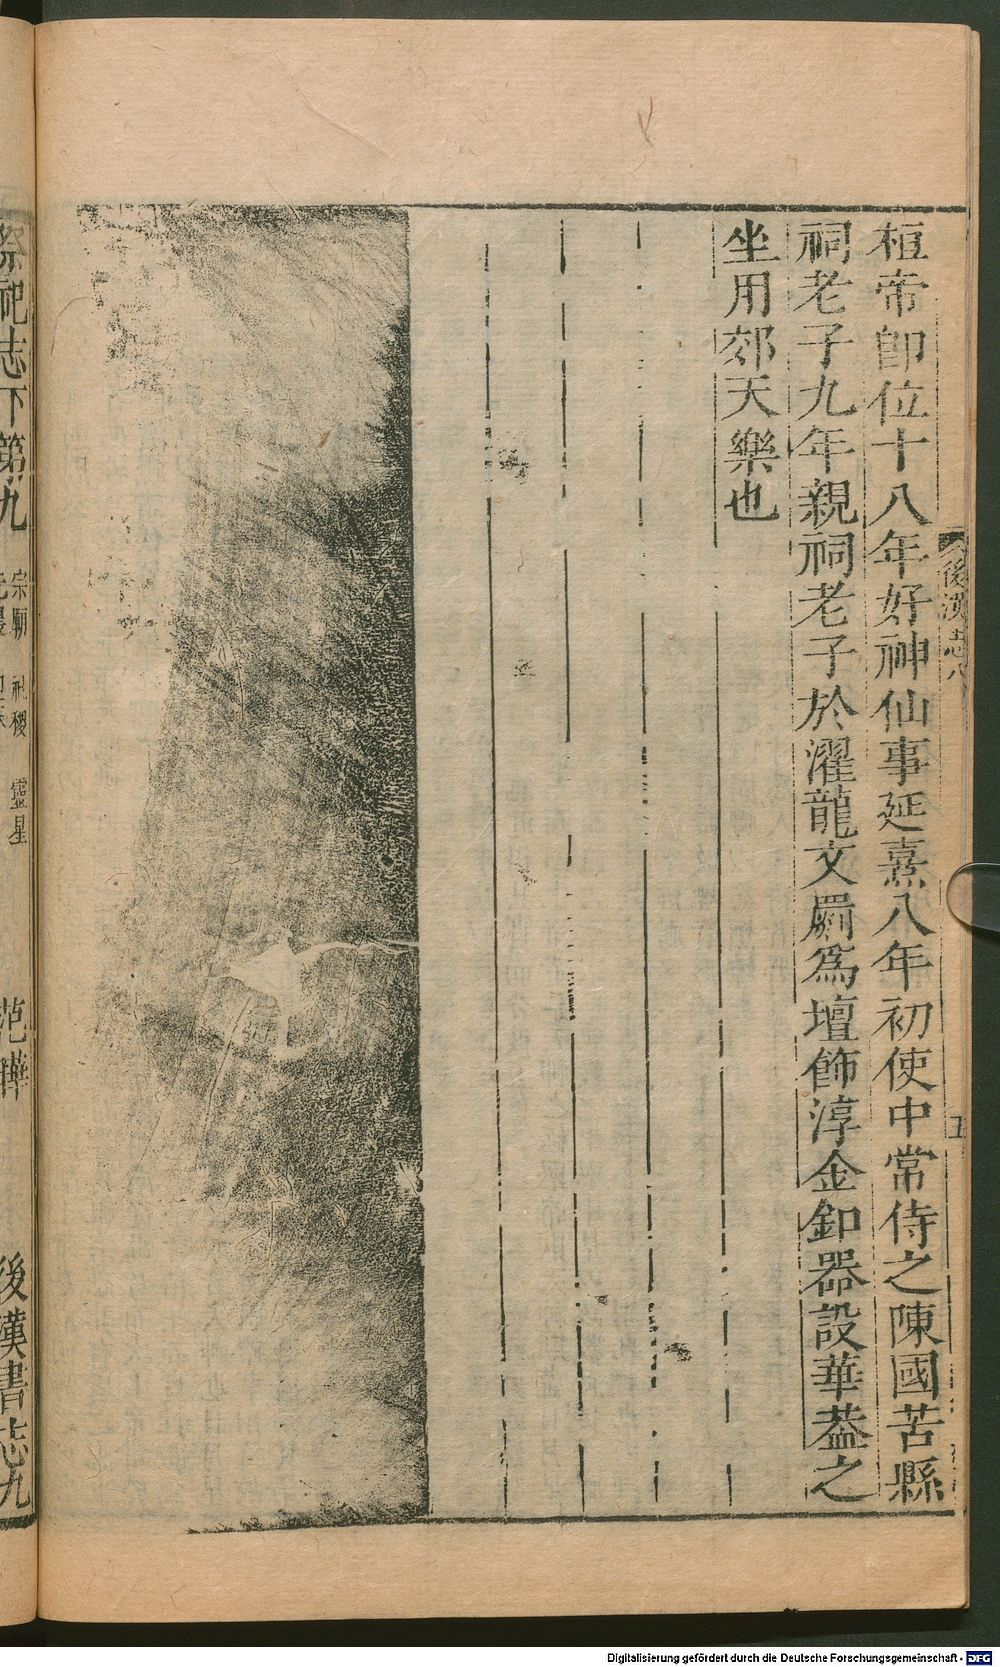 桓帝卽位十八年好神仙事延熹八年初使中常侍之陳國苦縣
祠老子九年親祠老子於濯龍文罽爲壇飾淳金釦器設華葢之
坐用郊天樂也
後漢志八
五
祭祀志下第九
宗廟 社稷 靈星
范曄
後漢書志九
Digitalisierung gefördert durch die Deutsche Forschungsgemeinschaft - DFG